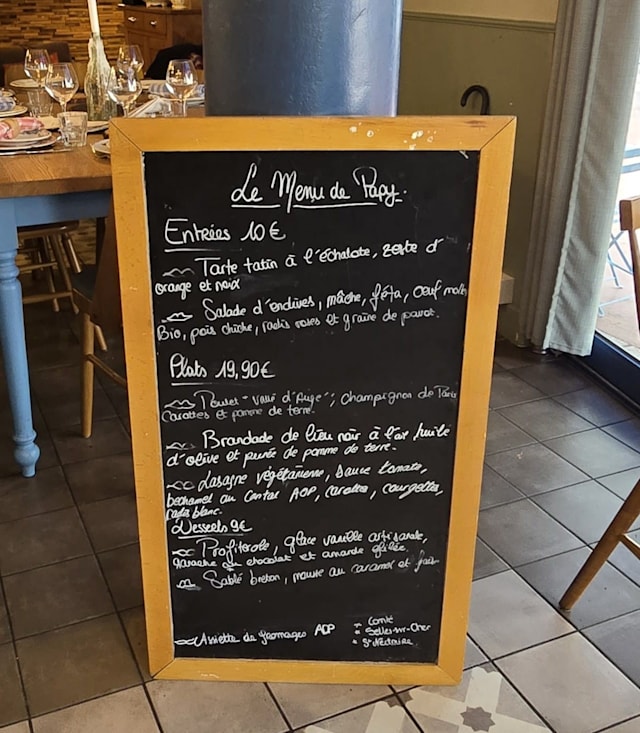 Le Menu de Papy.
Entrées 10€
Tarte tatin à l'échalote, zeste d'
orange et noix
Salade d'endives, mâche, féta, oeuf mollet
Bio, pois chiche, radis roses et graine de pavot.
Plats 19,90€
Poulet "Vallé d'Auge", Champignon de Paris
Carottes et pomme de terre.
Brandade de lieu noir à l'ail, huile
d'olive et purée de pomme de terre.
Lasagne végétarienne, sauce tomate,
bechamel au Cantal AOP, carottes, courgettes,
radis blanc.
Desserts 9€
Profiterole, glace vanille artisanale,
chocolat et amande effilée.
Sablé breton, au caramel et
Assiette de fromages AOP
Comté
Selles-sur-Cher
St Nectaire